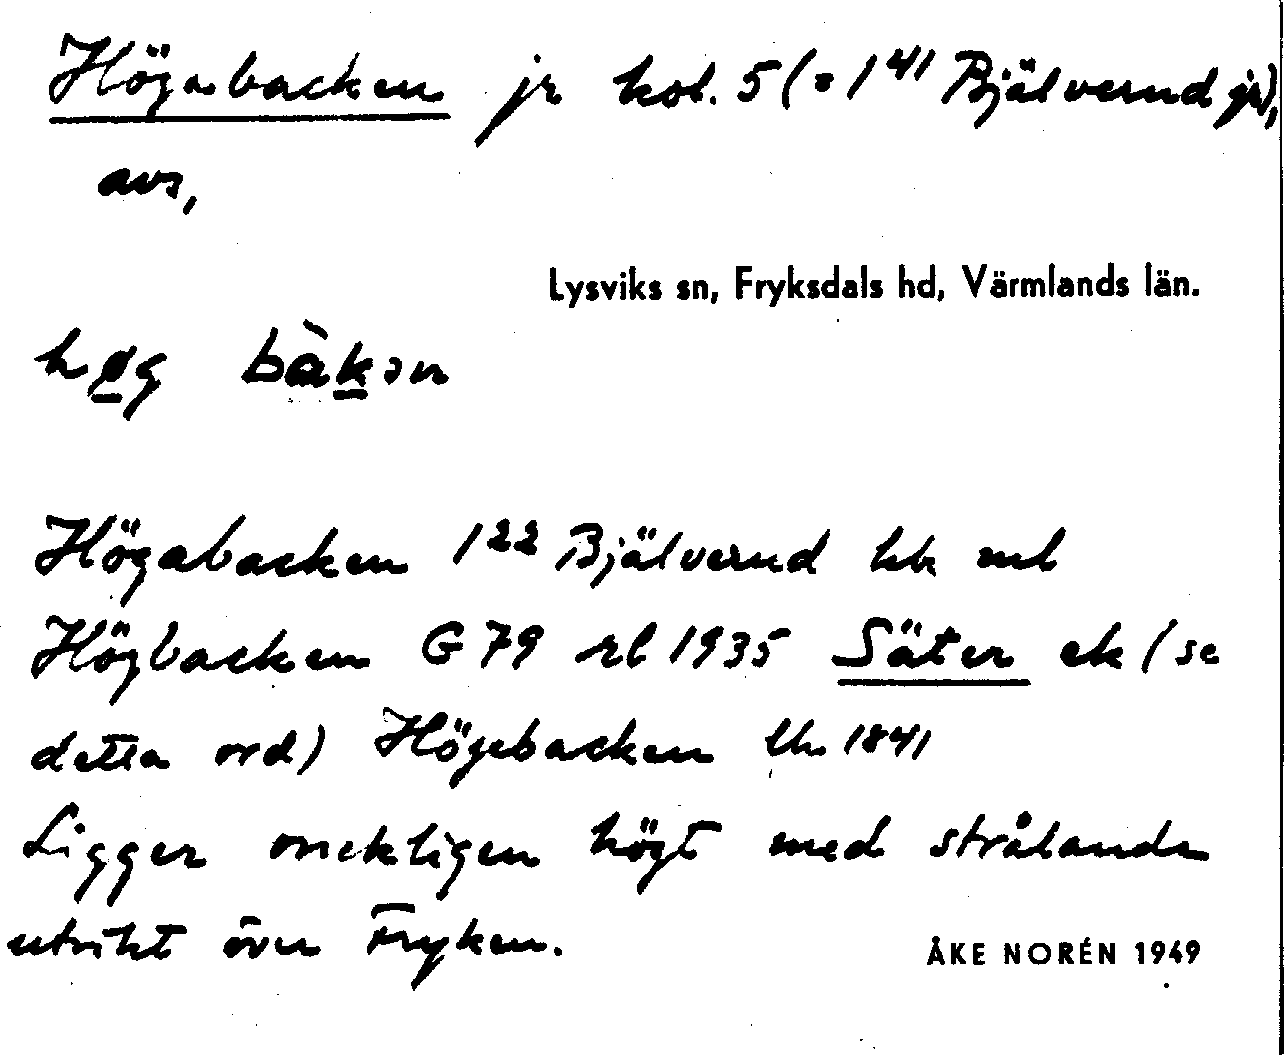 Högabacken jr kol. 5 (= 1⁴¹ Bjälverud jr),
avs,
Lysviks sn, Fryksdals hd, Värmlands län.
høg bàkən
Högabacken 1²² Bjälverud
Högbacken G 79 rl 1935 Säter ek (se
detta ord) Högebacken lh. 1841
Ligger högt med strålande
utsikt över Fryken.
ÅKE NORÉN 1949